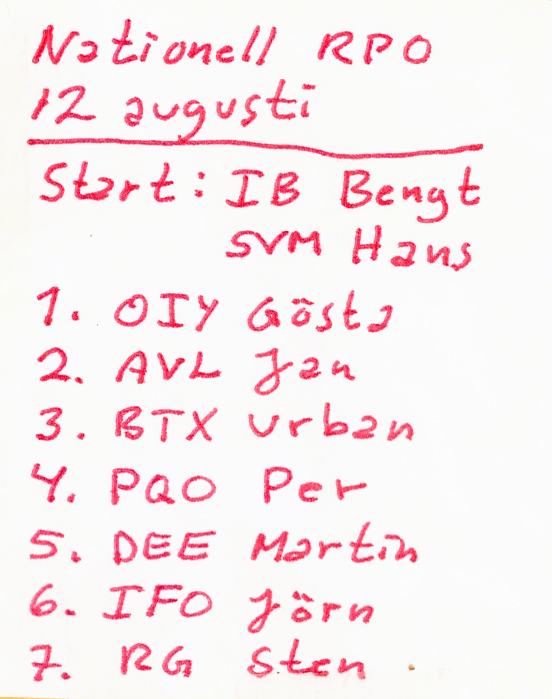 Nationell RPO
12 augusti
Start: IB Bengt
SVM Hans
1. OIY Gösta
2. AVL Jan
3. BTX Urban
4. PQO Per
5. DEE Martin
6. IFO Jörn
7. RG Sten